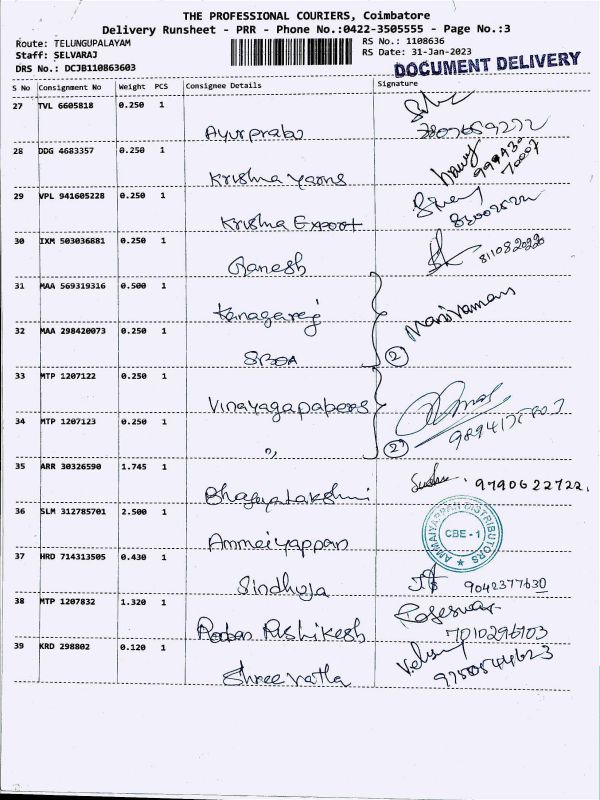 THE PROFESSIONAL COURIERS, Coimbatore
Delivery Runsheet - PRR - Phone No.:0422-3505555 - Page No.:3
Route: TELUNGUPALAYAM
Staff: SELVARAJ
DRS No.: DCJB110863603
RS No.: 1108636
RS Date: 31-Jan-2023
DOCUMENT DELIVERY
S No Consignment No Weight PCS Consignee Details Signature
27 TVL 6605818 0.250 1
Ayurprabu
28 DDG 4683357 0.250 1
Krishna Yarns
29 VPL 941605228 0.250 1
Krishna Export
30 IXM 503036881 0.250 1
Ganesh
811082020
31 MAA 569319316 0.500 1
Kanagaraj
Manivaman
32 MAA 298420073 0.250 1
SBOA
2
33 MTP 1207122 0.250 1
Vinayagapapers
34 MTP 1207123 0.250 1
"
2
35 ARR 30326590 1.745 1
Bhagyalakshmi
9790622722.
36 SLM 312785701 2.500 1
Ammaiyappan
AMMAIYAPPAN DISTRIBUTORS
CBE - 1
37 HRD 714313505 0.430 1
Sindhuja
9042377630
38 MTP 1207832 1.320 1
Rishikesh
7010296903
39 KRD 298802 0.120 1
Shree vatla
9750544623